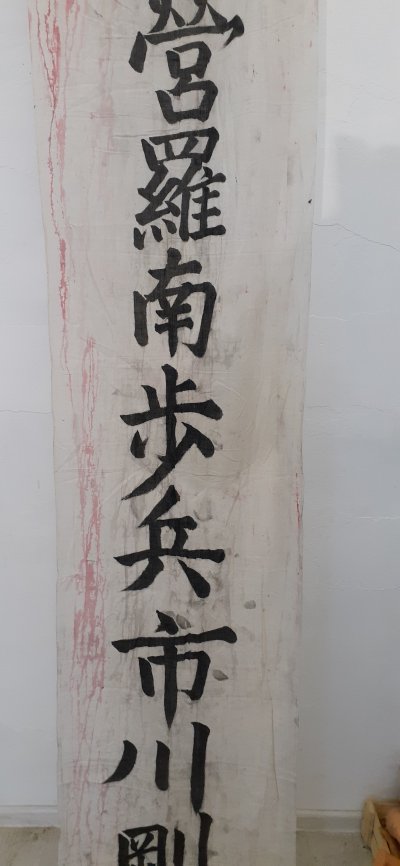 營羅南歩兵市川剛